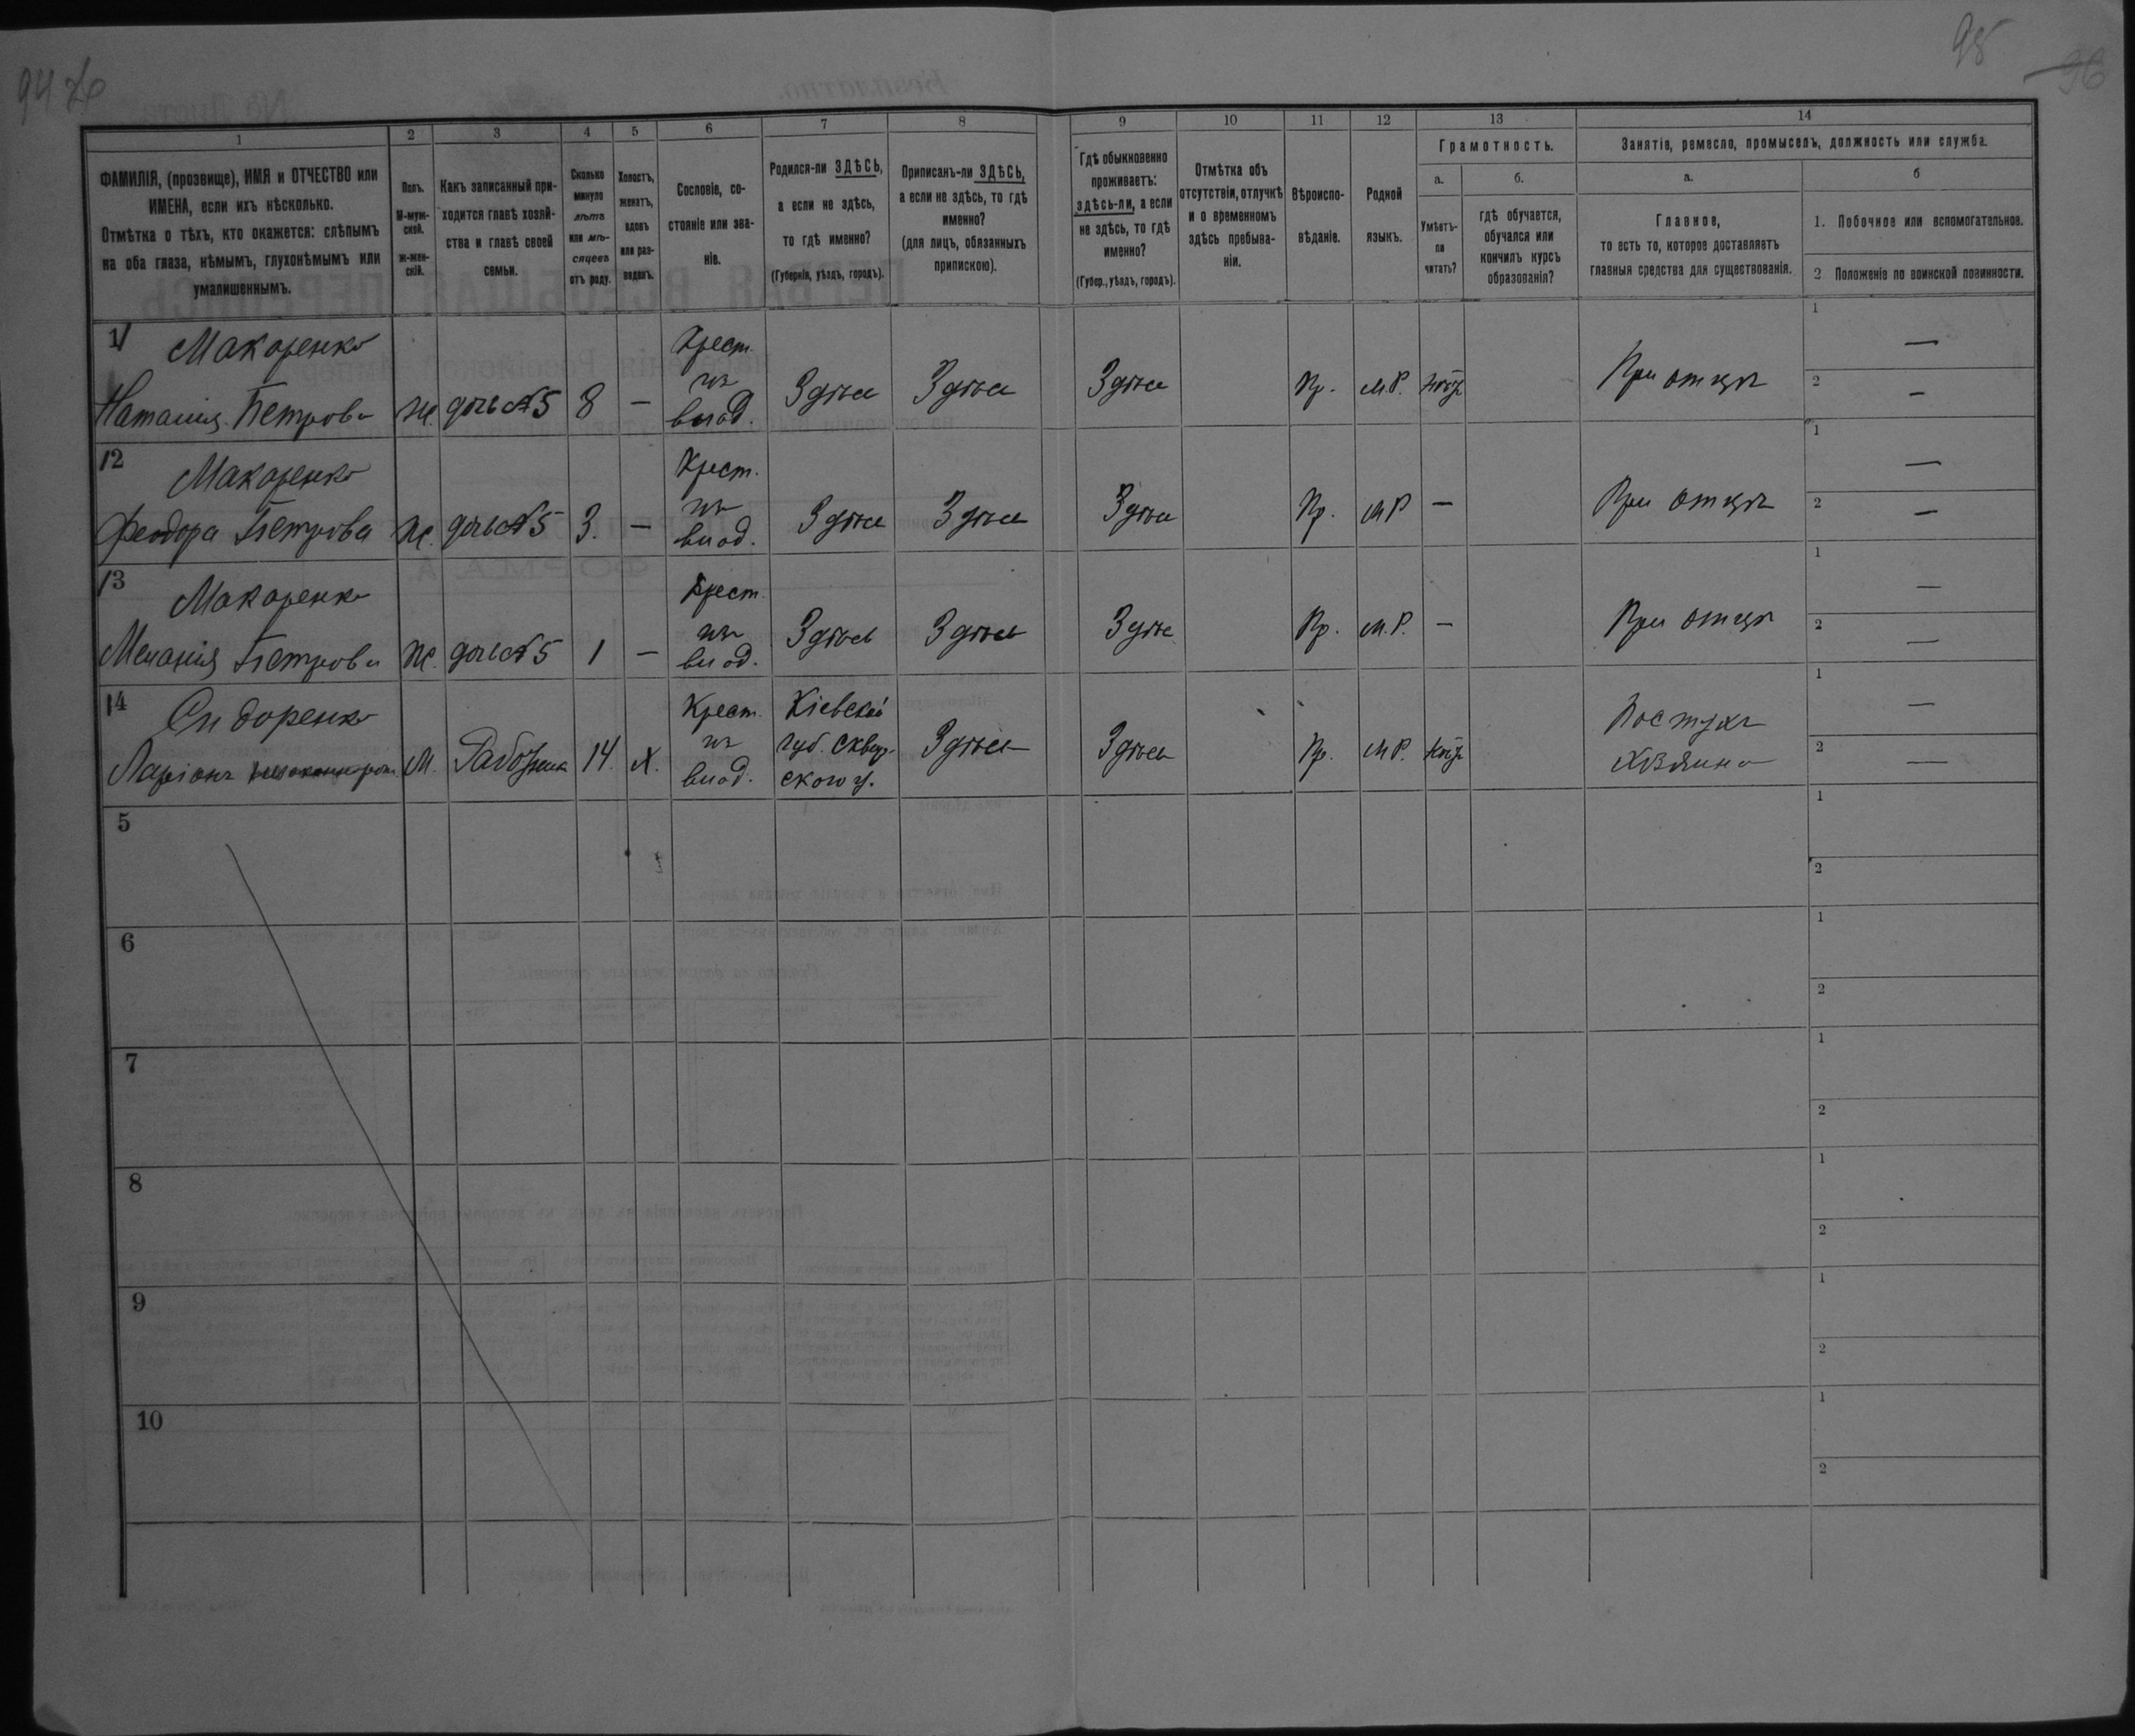 94
95
96
1
2
3
4
5
6
7
8
9
10
11
12
13
14
ФАМИЛІЯ, (прозвище), ИМЯ и ОТЧЕСТВО или
ИМЕНА, если ихъ нѣсколько.
Отмѣтка о тѣхъ, кто окажется: слѣпымъ
на оба глаза, нѣмымъ, глухонѣмымъ или
умалишеннымъ.
Полъ.
М-муж-
ской.
ж-жен-
скій.
Какъ записанный при-
ходится главѣ хозяй-
ства и главѣ своей
семьи.
Сколько
минуло
лѣтъ
или мѣ-
сяцевъ
отъ роду.
Холостъ,
женатъ,
вдовъ
или раз-
веденъ.
Сословіе, со-
стояніе или зва-
ніе.
Родился-ли ЗДѢСЬ,
а если не здѣсь,
то гдѣ именно?
(Губернія, уѣздъ, городъ).
Приписанъ-ли ЗДѢСЬ,
а если не здѣсь, то гдѣ
именно?
(для лицъ, обязанныхъ
припискою).
Гдѣ обыкновенно
проживаетъ:
здѣсь-ли, а если
не здѣсь, то гдѣ
именно?
(Губер., уѣздъ, городъ).
Отмѣтка объ
отсутствіи, отлучкѣ
и о временномъ
здѣсь пребыва-
ніи.
Вѣроиспо-
вѣданіе.
Родной
языкъ.
Грамотность.
а.
Умѣетъ-
ли
читать?
б.
гдѣ обучается,
обучался или
кончилъ курсъ
образованія?
Занятіе, ремесло, промыселъ, должность или служба.
а.
Главное,
то есть то, которое доставляетъ
главныя средства для существованія.
б
1. Побочное или вспомогательное.
2 Положеніе по воинской повинности.
1 Макаренко
Крест.
изъ
влад.
Наталія Петрова ж. дочь №5 8 — Здѣсь Здѣсь Здѣсь Пр. М.Р. При отцѣ
1 —
2 —
2 Макаренко
Крест.
изъ
влад.
Феодора Петрова ж. дочь №5 3. — Здѣсь Здѣсь Здѣсь Пр. МР — При отцѣ
1 —
2 —
3 Макаренко
Крест.
изъ
влад.
Меланія Петрова ж. дочь №5 1 — Здѣсь Здѣсь Здѣсь Пр. М.Р. — При отцѣ
1 —
2 —
4 Сидоренко
Крест.
изъ
влад.
Кіевской
губ. Сквир-
ского у.
Ларіонъ М. 14. Х. Здѣсь Здѣсь Пр. МР. Пастухъ
хозяина
1 —
2 —
5
1
2
6
1
2
7
1
2
8
1
2
9
1
2
10
1
2